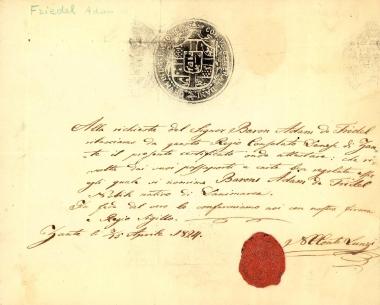 Friedel Adam
Alla richiesta del Signor Baron Adam de Friedel
rilasciamo da questo Regio Consolato Danese di Zan-
te il presente certificato onde attestare: che
dai suoi passaporti e carte
quali si nomina Barone Adam de Friedel
Nobile nativo di Danimarca.
In fede del vero lo confermiamo noi con nostra firma
e Regio Sigillo.
Zante li 25 Aprile 1824.